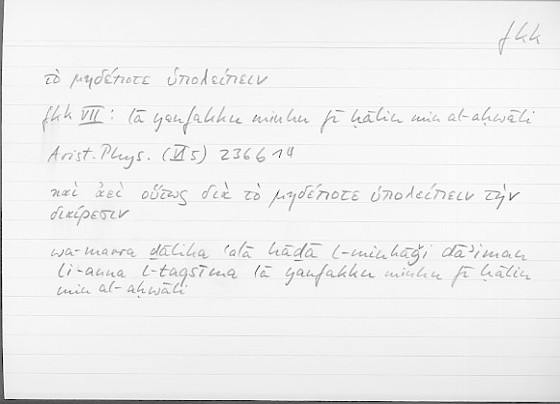 fkk
τὸ μηδέποτε ὑπολείπειν
fkk VII: lā yanfakku minhu fī ḥālin min al-aḥwāli
Arist. Phys. (VI 5) 236b14
καὶ ἀεὶ οὕτως διὰ τὸ μηδέποτε ὑπολείπειν τὴν
διαίρεσιν
wa-marra ḏālika ʿalā hāḏā l-minhāǧi dāʾiman
li-anna l-taqsīma lā yanfakku minhu fī ḥālin
min al-aḥwāli